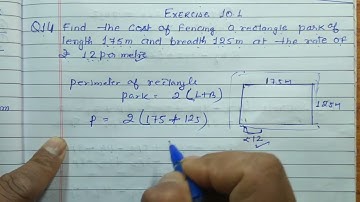 Exercise 10.1
Q14 Find the cost of fencing a rectangle park of
length 175m and breadth 125m at the rate of
₹ 12 per metre
perimeter of rectangle
park = 2(L+B)
P = 2(175+125)
175M
125M
₹12